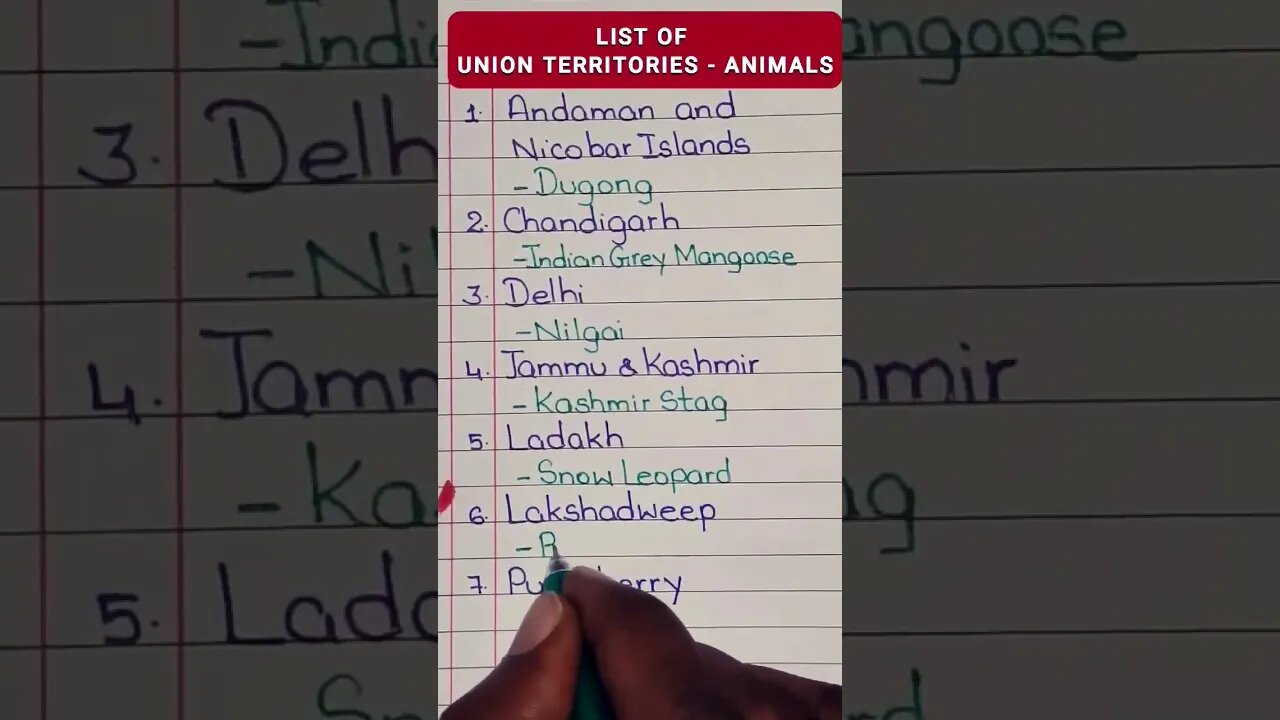 LIST OF
UNION TERRITORIES - ANIMALS
1. Andaman and
Nicobar Islands
- Dugong
2. Chandigarh
- Indian Grey Mangoose
3. Delhi
- Nilgai
4. Jammu & Kashmir
- Kashmir Stag
5. Ladakh
- Snow Leopard
6. Lakshadweep
-
7.